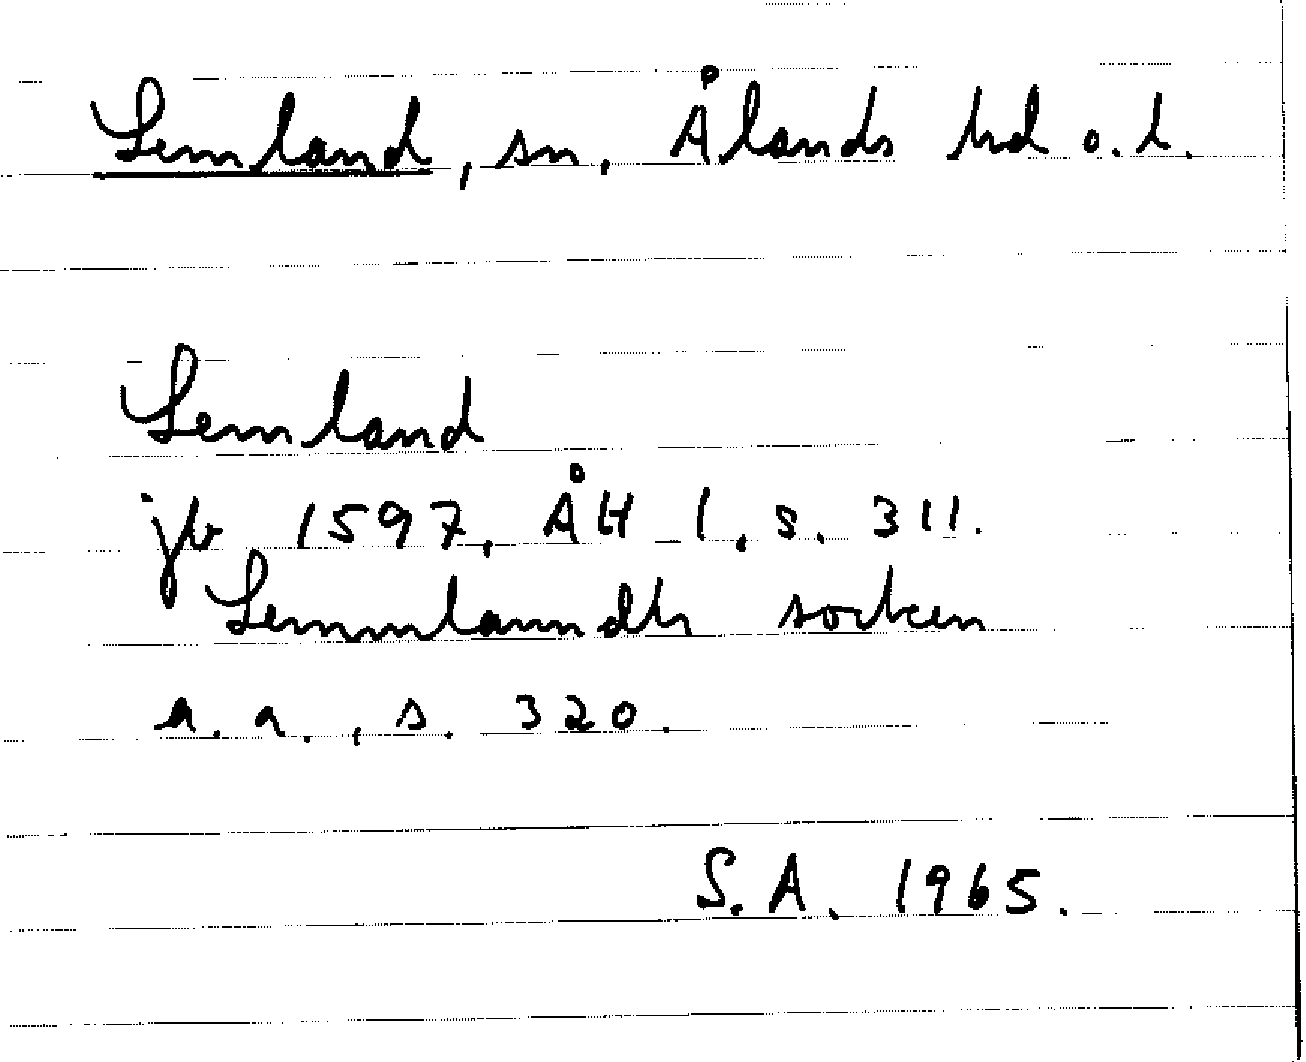 Lemland, sn, Ålands hd o. l.
Lemland
jb 1597, ÅH 1, s. 311.
Lemmlanndtz socken
a. a., s. 320.
S. A. 1965.